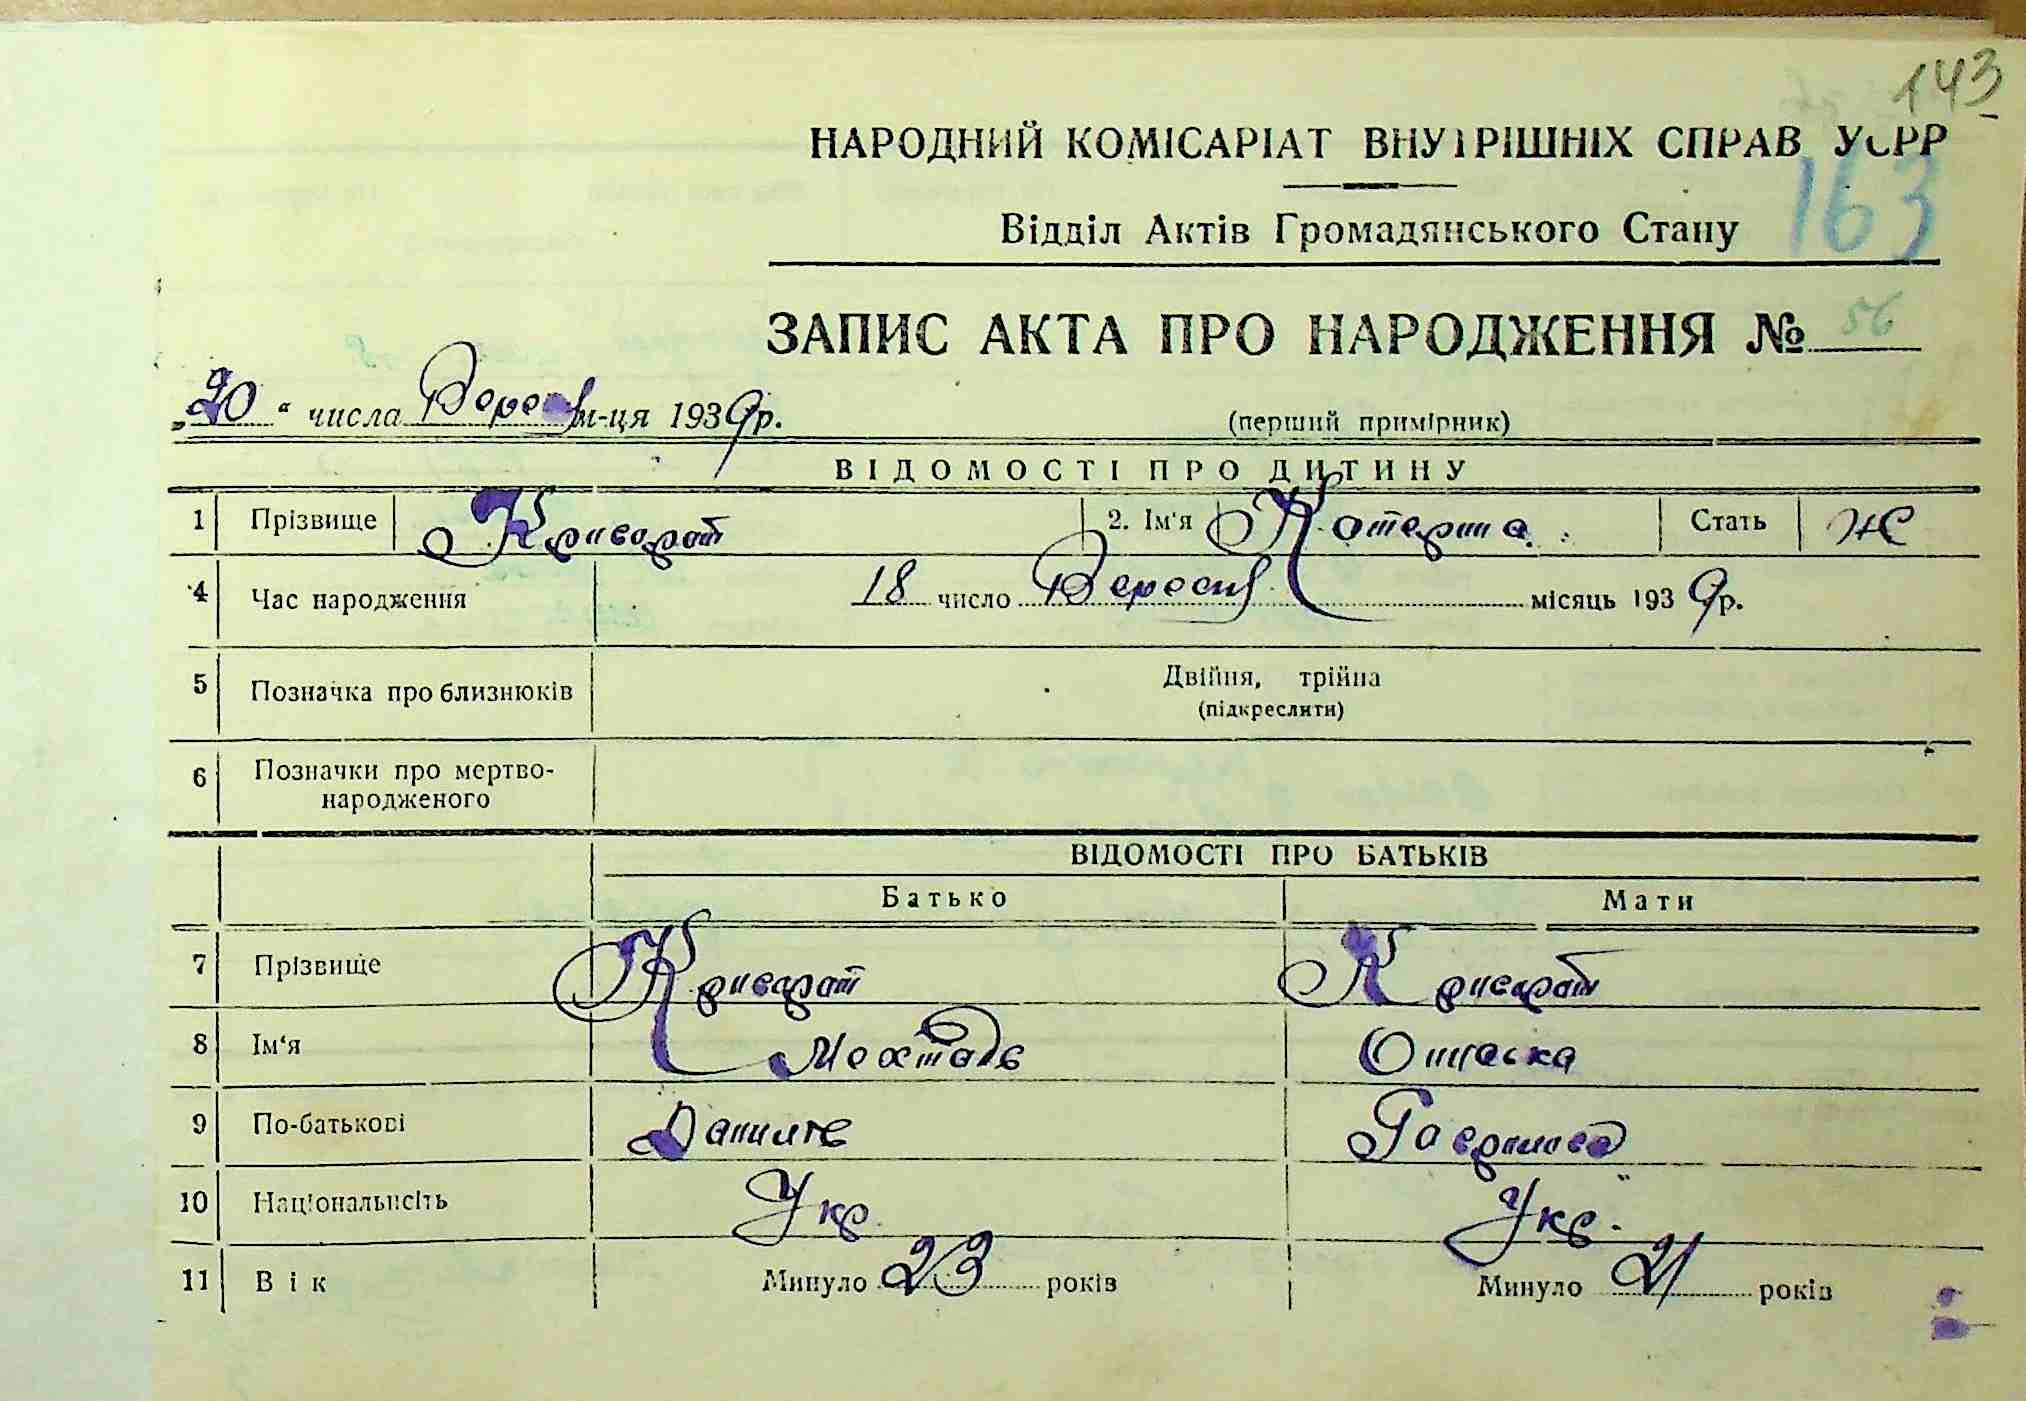 143
НАРОДНИЙ КОМІСАРІАТ ВНУТРІШНІХ СПРАВ УСРР
163
Відділ Актів Громадянського Стану
ЗАПИС АКТА ПРО НАРОДЖЕННЯ № 56
„20“ числа Вересня м-ця 1939 р. (перший примірник)
ВІДОМОСТІ ПРО ДИТИНУ
1 Прізвище Криворот 2. Ім'я Котерина Стать Же
4 Час народження 18 число Вересня місяць 1939 р.
5 Позначка про близнюків Двійня, трійна
(підкреслити)
6 Позначки про мертво-
народженого
ВІДОМОСТІ ПРО БАТЬКІВ
Батько Мати
7 Прізвище Криворот Криворот
8 Ім'я
9 По-батькові Данилів Гаврилова
10 Національність Укр. Укр.
11 Вік Минуло 23 років Минуло 21 років